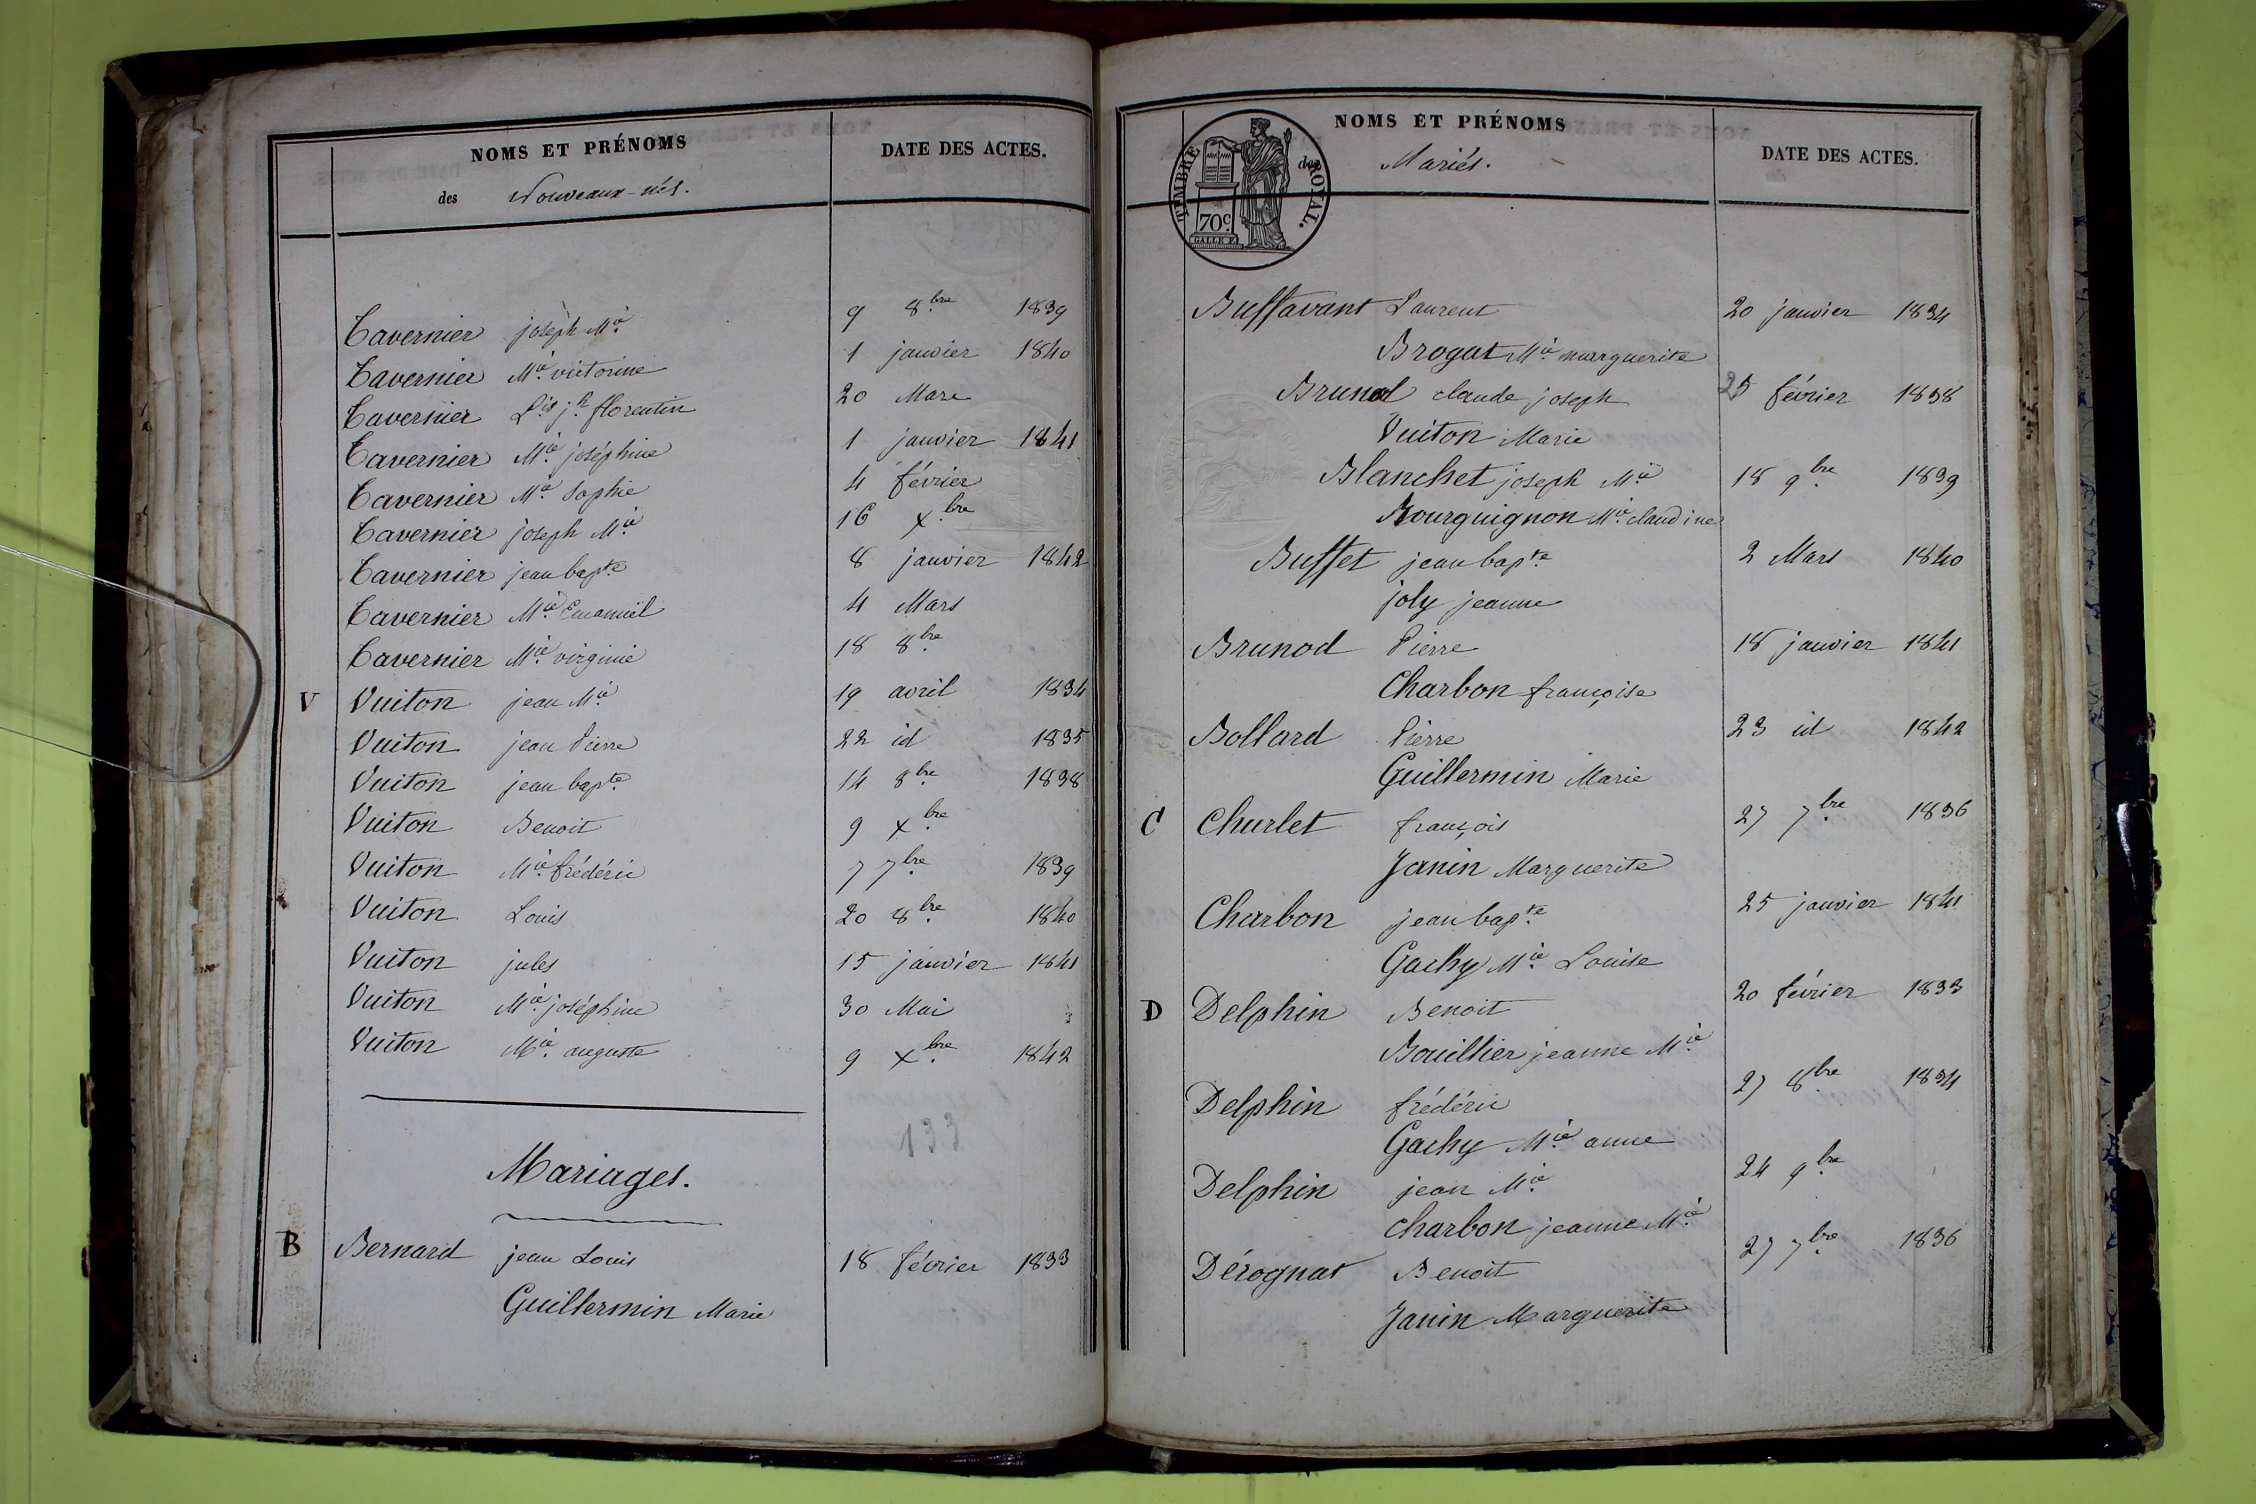 NOMS ET PRÉNOMS DATE DES ACTES.
des Nouveaux-nés.
Tavernier joseph Mie 9 8bre 1839
Tavernier Mie victorine 1 janvier 1840
Tavernier Lis jh florentin 20 Mars
Tavernier Mie joséphine 1 janvier 1841
Tavernier Mie Sophie 4 février
Tavernier joseph Mie 16 xbre
Tavernier jean bapte 8 janvier 1842
Tavernier Mie Emanuël 4 Mars
Tavernier Mie virginie 18 8bre
V Vuiton jean Mie 19 avril 1834
Vuiton jean Pierre 22 id 1835
Vuiton jean bapte 14 8bre 1838
Vuiton Benoit 9 xbre
Vuiton Mie frédéric 7 7bre 1839
Vuiton Louis 20 8bre 1840
Vuiton jules 15 janvier 1841
Vuiton Mie joséphine 30 Mai
Vuiton Mie auguste 9 xbre 1842
133
Mariages.
B Bernard jean Louis 18 février 1833
Guillermin Marie
NOMS ET PRÉNOMS DATE DES ACTES.
des Mariés.
TIMBRE ROYAL.
70c
Buffavant Laurent 20 janvier 1834
Brogat Mie marguerite
Brunod claude joseph 25 février 1838
Vuiton Marie
Blanchet joseph Mie 18 9bre 1839
Bourguignon Mie claudine
Buffet jean bapte 2 Mars 1840
joly jeanne
Brunod Pierre 18 janvier 1841
Charbon françoise
Bollard Pierre 23 id 1842
Guillermin Marie
C Churlet françois 27 7bre 1836
Janin Marguerite
Charbon jean bapte 25 janvier 1841
Gachy Mie Louise
D Delphin Benoit 20 février 1833
Bouillier jeanne Mie
Delphin frédéric 27 8bre 1834
Gachy Mie anne
Delphin jean Mie 24 9bre
Charbon jeanne Mie
Dérognat Benoit 27 7bre 1836
Janin Marguerite